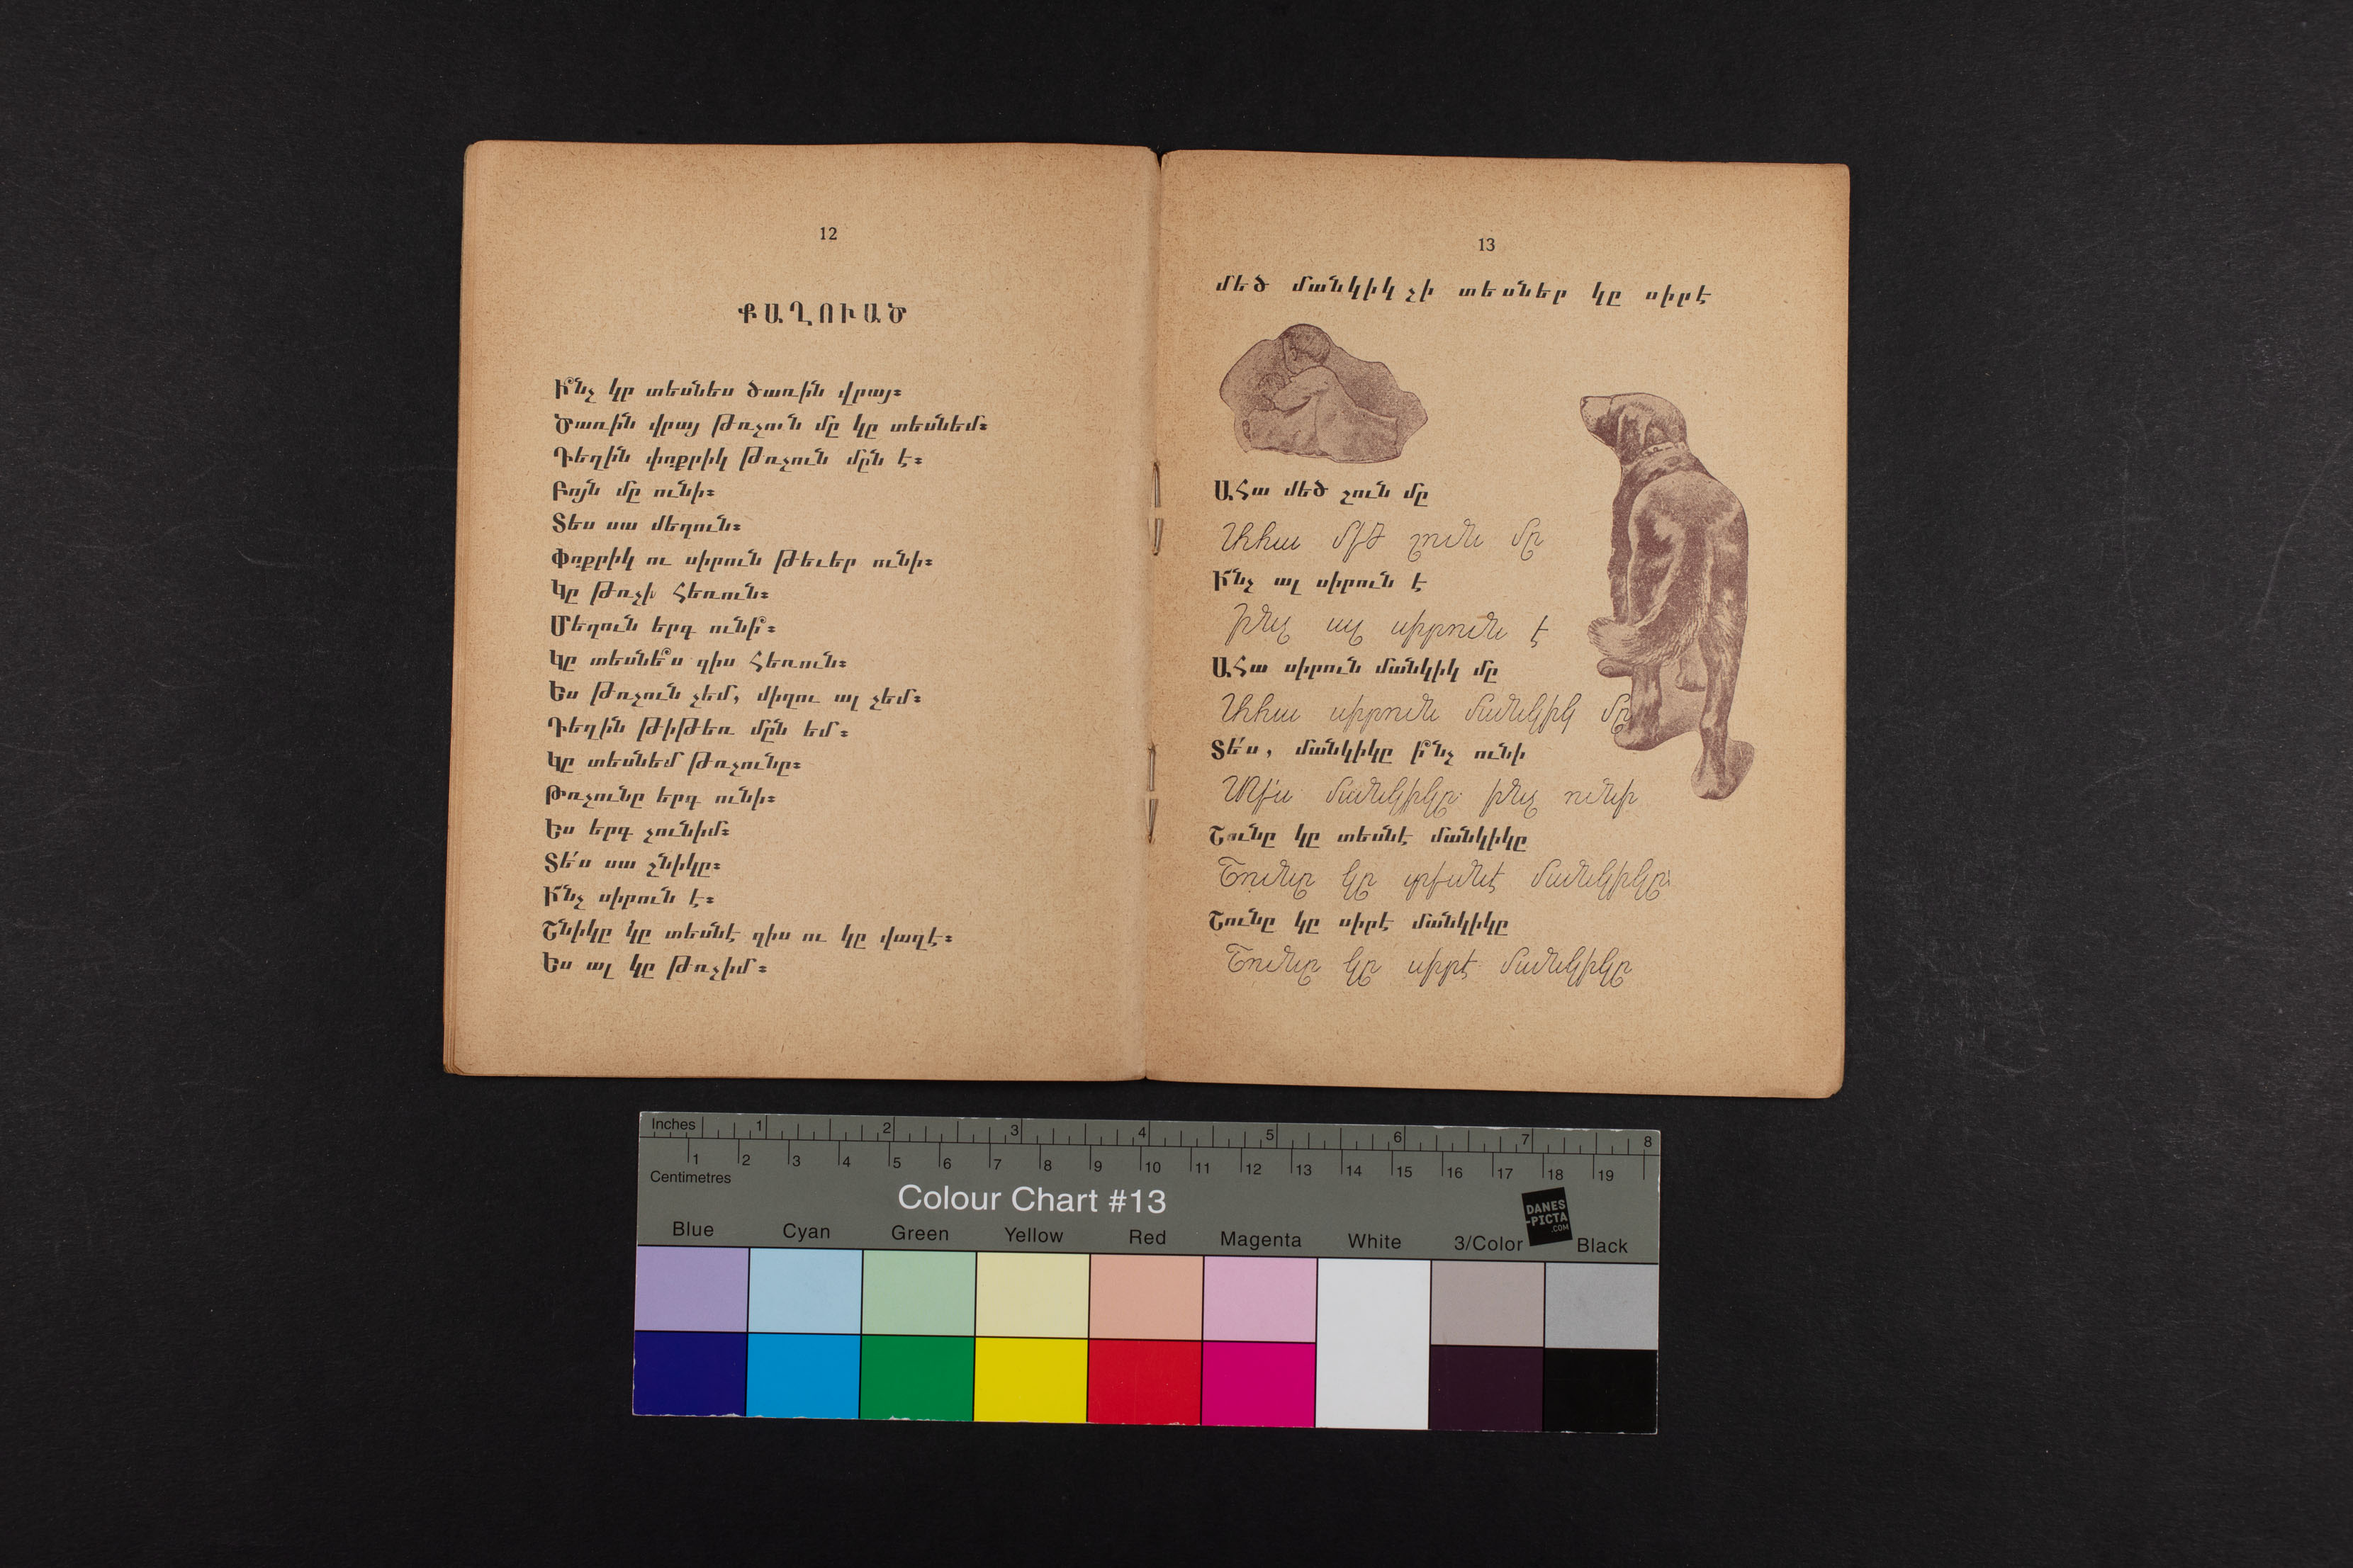 12
ՔԱՂՈՒԱԾ
Ի՞նչ կը տեսնես ծառին վրայ։
Ծառին վրայ թռչուն մը կը տեսնեմ։
Դեղին փոքրիկ թռչուն մըն է։
Բոյն մը ունի։
Տես սա մեղուն։
Փոքրիկ ու սիրուն թեւեր ունի։
Կը թռչի հեռուն։
Մեղուն երգ ունի՞։
Կը տեսնե՞ս զիս հեռուն։
Ես թռչուն չեմ, միղու ալ չեմ։
Դեղին թիթեռ մըն եմ։
Կը տեսնեմ թռչունը։
Թռչունը երգ ունի։
Ես երգ չունիմ։
Տե՛ս սա շնիկը։
Ի՜նչ սիրուն է։
Շնիկը կը տեսնէ զիս ու կը վազէ։
Ես ալ կը թռչիմ։
13
մեծ մանկիկ չի տեսներ կը սիրէ
Ահա մեծ շուն մը
Ահա մեծ շուն մը
Ի՜նչ ալ սիրուն է
Ինչ ալ սիրուն է
Ահա սիրուն մանկիկ մը
Ահա սիրուն մանկիկ մը
Տե՛ս, մանկիկը ի՞նչ ունի
Տե՛ս մանկիկը ինչ ունի
Շունը կը տեսնէ մանկիկը
Շունը կը տեսնէ մանկիկը
Շունը կը սիրէ մանկիկը
Շունը կը սիրէ մանկիկը
Inches 1 2 3 4 5 6 7 8
1 2 3 4 5 6 7 8 9 10 11 12 13 14 15 16 17 18 19
Centimetres
Colour Chart #13
DANES
-PICTA
.COM
Blue Cyan Green Yellow Red Magenta White 3/Color Black